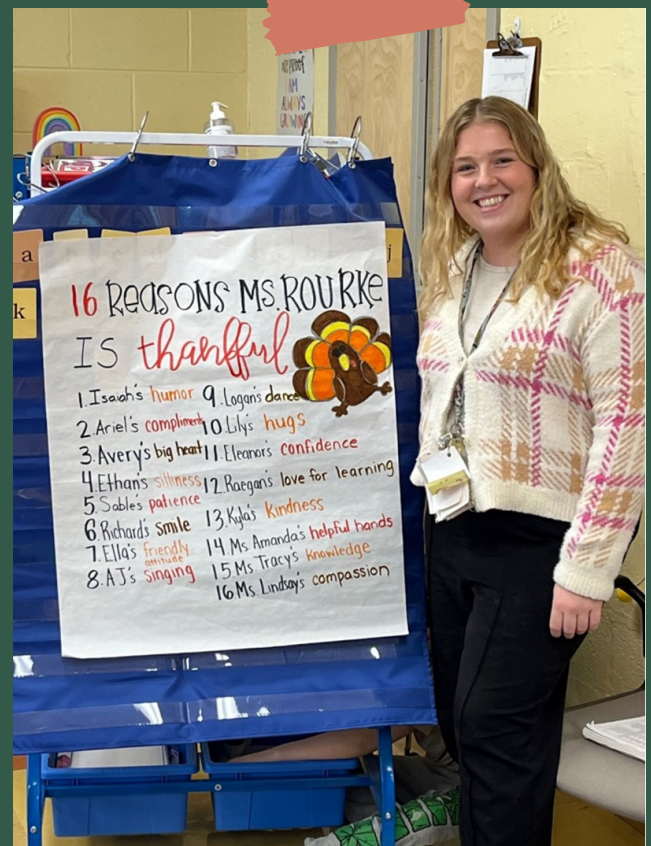 I AM
ALWAYS
GROWING
a
j
k
16 REASONS MS. ROURKE
IS thankful
1. Isaiah's humor
2. Ariel's compliments
3. Avery's big heart
4. Ethan's silliness
5. Sable's patience
6. Richard's smile
7. Ella's friendly
attitude
8. AJ's singing
9. Logan's dance
10. Lily's hugs
11. Eleanor's confidence
12. Raegan's love for learning
13. Kyla's kindness
14. Ms. Amanda's helpful hands
15. Ms. Tracy's knowledge
16. Ms. Lindsay's compassion